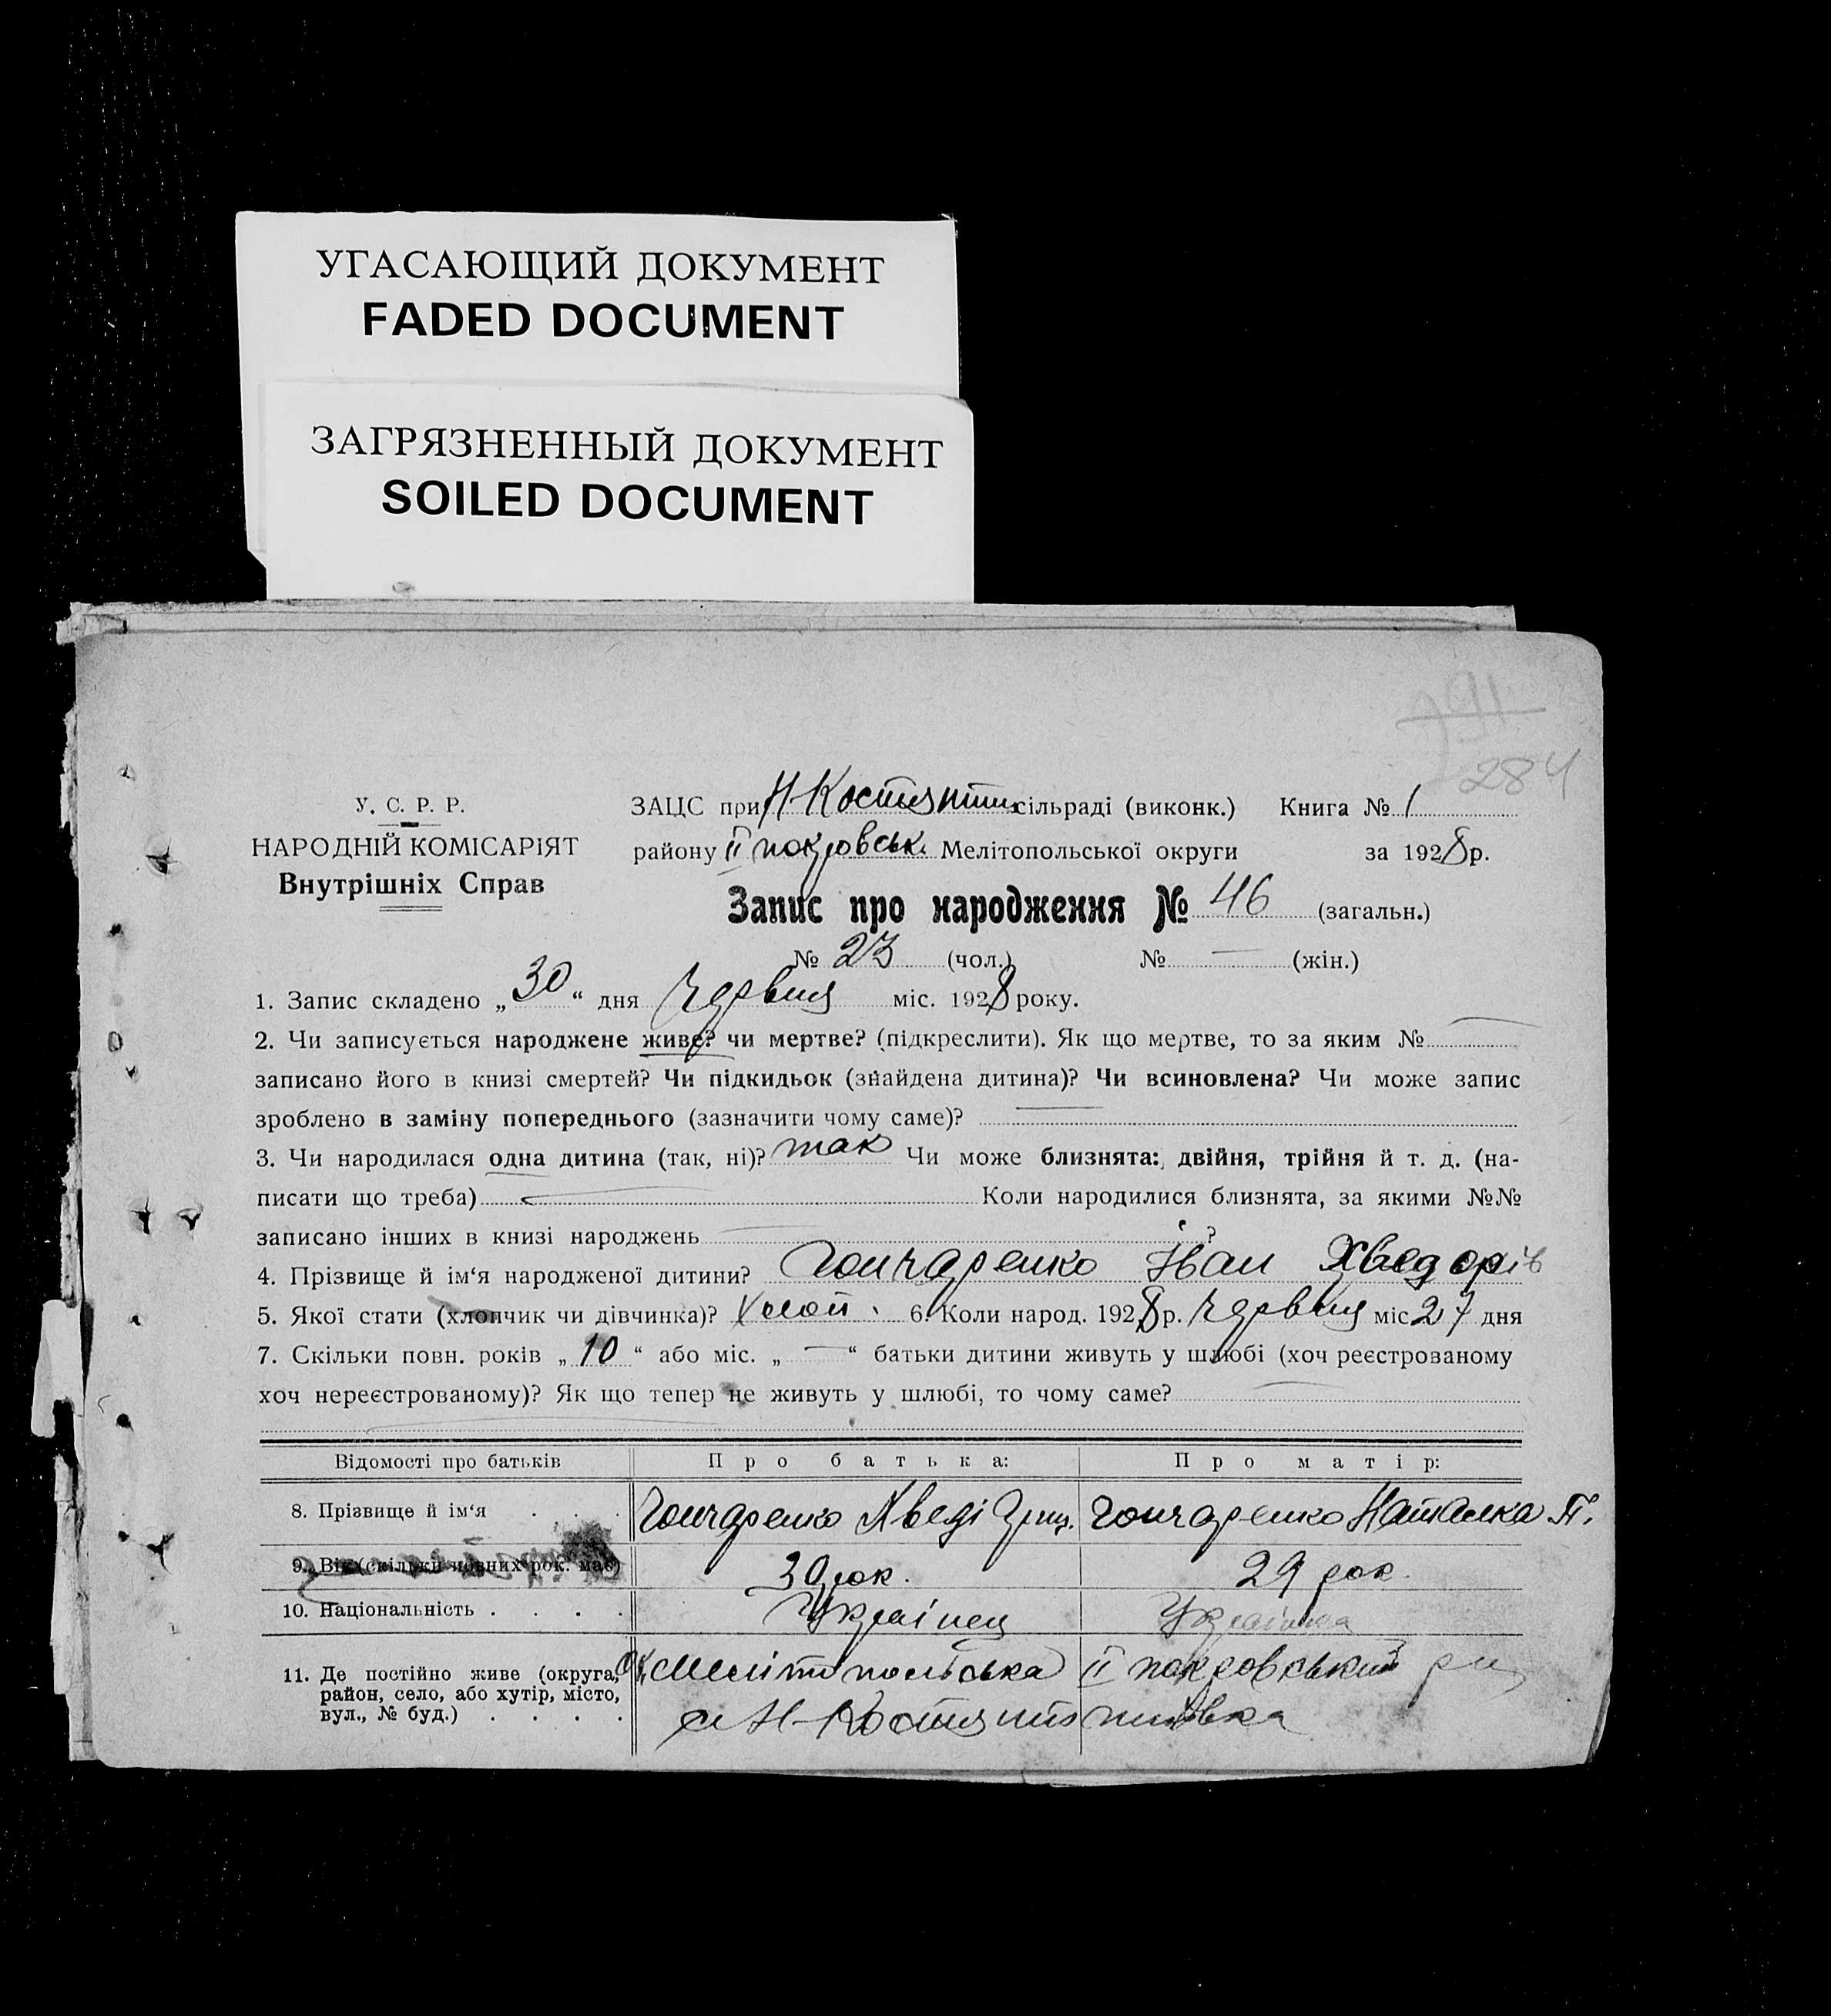 УГАСАЮЩИЙ ДОКУМЕНТ
FADED DOCUMENT
ЗАГРЯЗНЕННЫЙ ДОКУМЕНТ
SOILED DOCUMENT
284
У. С. Р. Р.
НАРОДНІЙ КОМІСАРІЯТ
Внутрішніх Справ
ЗАЦС при Н-Костянтин сільраді (виконк.) Книга № 1
району II покровськ. Мелітопольської округи за 1928 р.
Запис про народження № 46 (загальн.)
№ 23 (чол.) № — (жін.)
1. Запис складено „30“ дня Червня міс. 1928 року.
2. Чи записується народжене живе? чи мертве? (підкреслити). Як що мертве, то за яким № —
записано його в книзі смертей? Чи підкидьок (знайдена дитина)? Чи всиновлена? Чи може запис
зроблено в заміну попереднього (зазначити чому саме)? —
3. Чи народилася одна дитина (так, ні)? так Чи може близнята: двійня, трійня й т. д. (на-
писати що треба) — Коли народилися близнята, за якими №№
записано інших в книзі народжень — ?
4. Прізвище й ім‘я народженої дитини? Гончаренко Іван Хведорів
5. Якої стати (хлопчик чи дівчинка)? Хлоп. 6. Коли народ. 1928 р. Червня міс 27 дня
7. Скільки повн. років „10“ або міс. „—“ батьки дитини живуть у шлюбі (хоч реєстрованому
хоч нереєстрованому)? Як що тепер не живуть у шлюбі, то чому саме? —
Відомості про батьків Про батька: Про матір:
8. Прізвище й ім‘я . . . Гончаренко Хведі Гриц. Гончаренко Наталка П.
9. Вік (скільки повних рок. має) 30 рок. 29 рок.
10. Національність . . . . Українец Українка
11. Де постійно живе (округа, Ок. Мелітопольська II покровський рн
район, село, або хутір, місто,
вул., № буд.) . . . . с Н-Костянтинівка